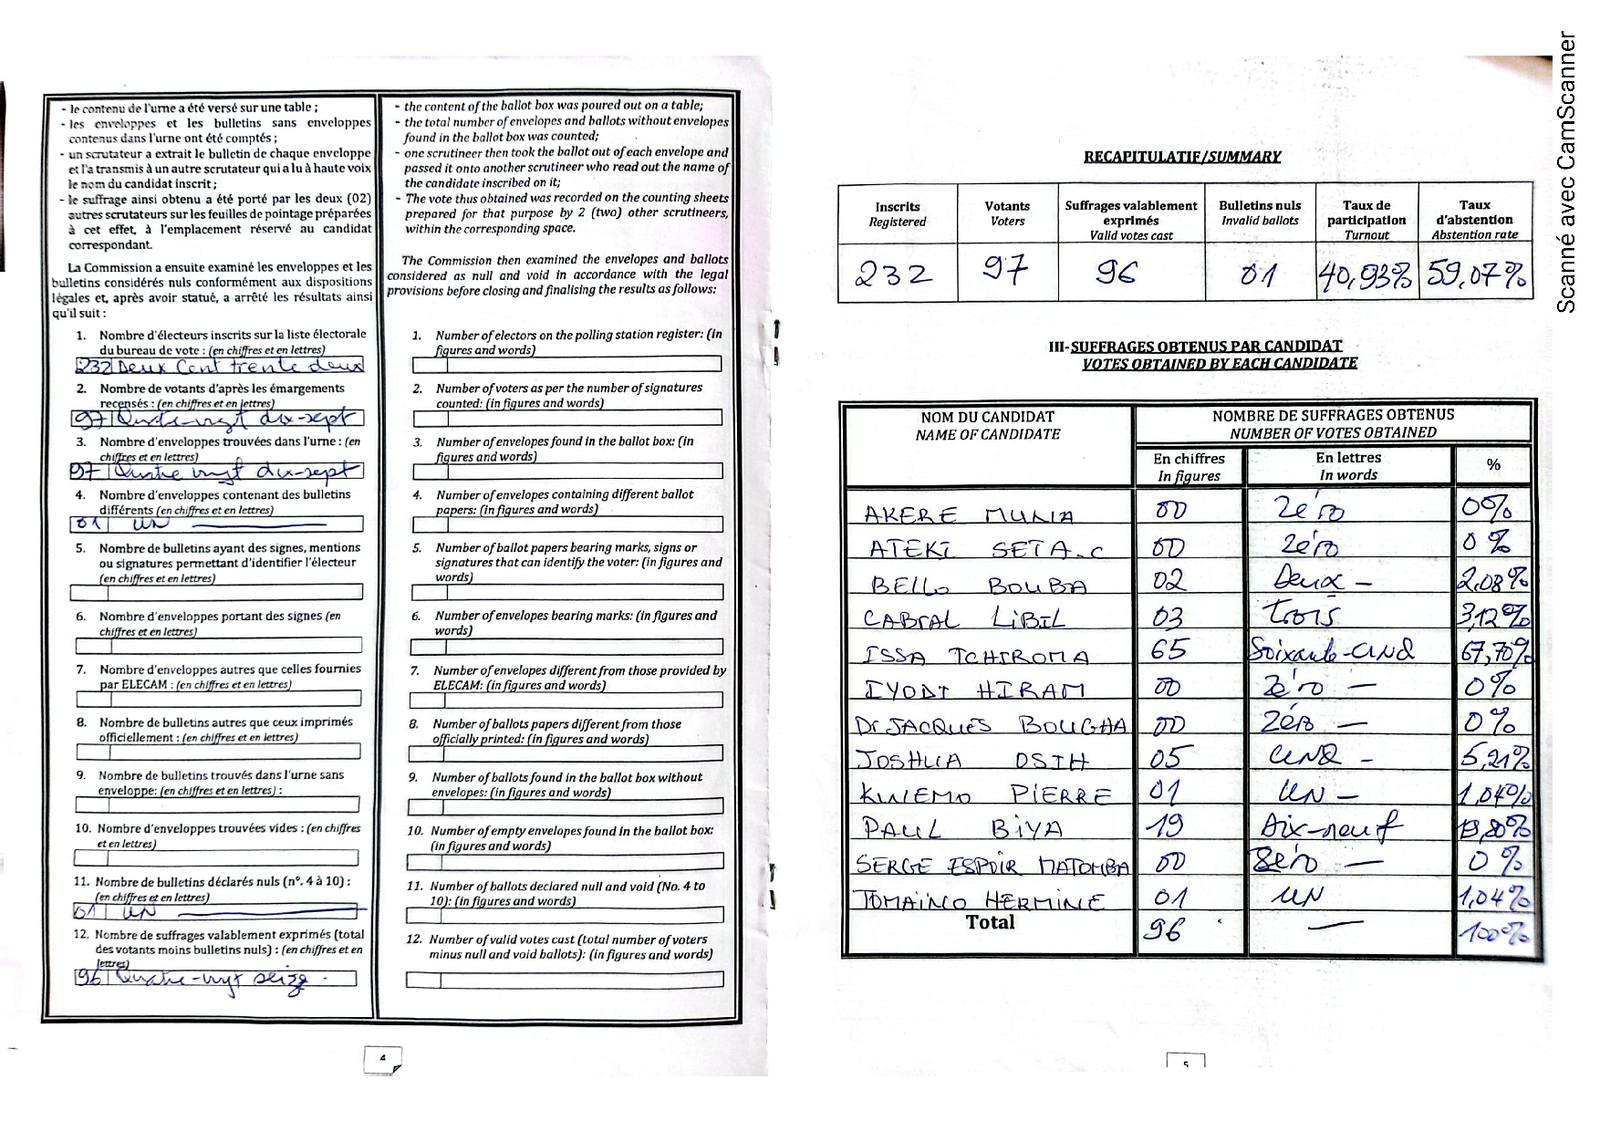 - le contenu de l'urne a été versé sur une table ;
- les enveloppes et les bulletins sans enveloppes
contenus dans l'urne ont été comptés ;
- un scrutateur a extrait le bulletin de chaque enveloppe
et l'a transmis à un autre scrutateur qui a lu à haute voix
le nom du candidat inscrit ;
- le suffrage ainsi obtenu a été porté par les deux (02)
autres scrutateurs sur les feuilles de pointage préparées
à cet effet, à l'emplacement réservé au candidat
correspondant.
La Commission a ensuite examiné les enveloppes et les
bulletins considérés nuls conformément aux dispositions
légales et, après avoir statué, a arrêté les résultats ainsi
qu'il suit :
1. Nombre d'électeurs inscrits sur la liste électorale
du bureau de vote : (en chiffres et en lettres)
232 Deux Cent trente deux
2. Nombre de votants d'après les émargements
recensés : (en chiffres et en lettres)
97 Quatre-vingt dix-sept
3. Nombre d'enveloppes trouvées dans l'urne : (en
chiffres et en lettres)
97 Quatre vingt dix-sept
4. Nombre d'enveloppes contenant des bulletins
différents (en chiffres et en lettres)
01 UN
5. Nombre de bulletins ayant des signes, mentions
ou signatures permettant d'identifier l'électeur
(en chiffres et en lettres)
6. Nombre d'enveloppes portant des signes (en
chiffres et en lettres)
7. Nombre d'enveloppes autres que celles fournies
par ELECAM : (en chiffres et en lettres)
8. Nombre de bulletins autres que ceux imprimés
officiellement : (en chiffres et en lettres)
9. Nombre de bulletins trouvés dans l'urne sans
enveloppe: (en chiffres et en lettres) :
10. Nombre d'enveloppes trouvées vides : (en chiffres
et en lettres)
11. Nombre de bulletins déclarés nuls (n°. 4 à 10) :
(en chiffres et en lettres)
01 UN
12. Nombre de suffrages valablement exprimés (total
des votants moins bulletins nuls) : (en chiffres et en
lettres)
96 Quatre-vingt seize
- the content of the ballot box was poured out on a table;
- the total number of envelopes and ballots without envelopes
found in the ballot box was counted;
- one scrutineer then took the ballot out of each envelope and
passed it onto another scrutineer who read out the name of
the candidate inscribed on it;
- The vote thus obtained was recorded on the counting sheets
prepared for that purpose by 2 (two) other scrutineers,
within the corresponding space.
The Commission then examined the envelopes and ballots
considered as null and void in accordance with the legal
provisions before closing and finalising the results as follows:
1. Number of electors on the polling station register: (in
figures and words)
2. Number of voters as per the number of signatures
counted: (in figures and words)
3. Number of envelopes found in the ballot box: (in
figures and words)
4. Number of envelopes containing different ballot
papers: (in figures and words)
5. Number of ballot papers bearing marks, signs or
signatures that can identify the voter: (in figures and
words)
6. Number of envelopes bearing marks: (in figures and
words)
7. Number of envelopes different from those provided by
ELECAM: (in figures and words)
8. Number of ballots papers different from those
officially printed: (in figures and words)
9. Number of ballots found in the ballot box without
envelopes: (in figures and words)
10. Number of empty envelopes found in the ballot box:
(in figures and words)
11. Number of ballots declared null and void (No. 4 to
10): (in figures and words)
12. Number of valid votes cast (total number of voters
minus null and void ballots): (in figures and words)
4
RECAPITULATIF/SUMMARY
Inscrits Votants Suffrages valablement Bulletins nuls Taux de Taux
Registered Voters exprimés Invalid ballots participation d'abstention
Valid votes cast Turnout Abstention rate
232 97 96 01 40,93% 59,07%
III- SUFFRAGES OBTENUS PAR CANDIDAT
VOTES OBTAINED BY EACH CANDIDATE
NOM DU CANDIDAT NOMBRE DE SUFFRAGES OBTENUS
NAME OF CANDIDATE NUMBER OF VOTES OBTAINED
En chiffres En lettres %
In figures In words
AKERE MUNA 00 Zéro 0%
ATEKI SETA.C 00 zéro 0 %
BELLO BOUBA 02 Deux - 2,08%
CABRAL LIBII 03 trois 3,12%
ISSA TCHIROMA 65 Soixante-cinq 67,70%
IYODI HIRAM 00 Zéro - 0%
Dr JACQUES BOUGHA 00 Zéro - 0%
JOSHUA OSIH 05 CINQ - 5,21%
KWEMO PIERRE 01 UN - 1,04%
PAUL BIYA 19 Dix-neuf
SERGE ESPOIR MATOMBA 00 Zéro - 0 %
TOMAINO HERMINE 01 UN 1,04%
Total 96 - 100%
5
Scanné avec CamScanner